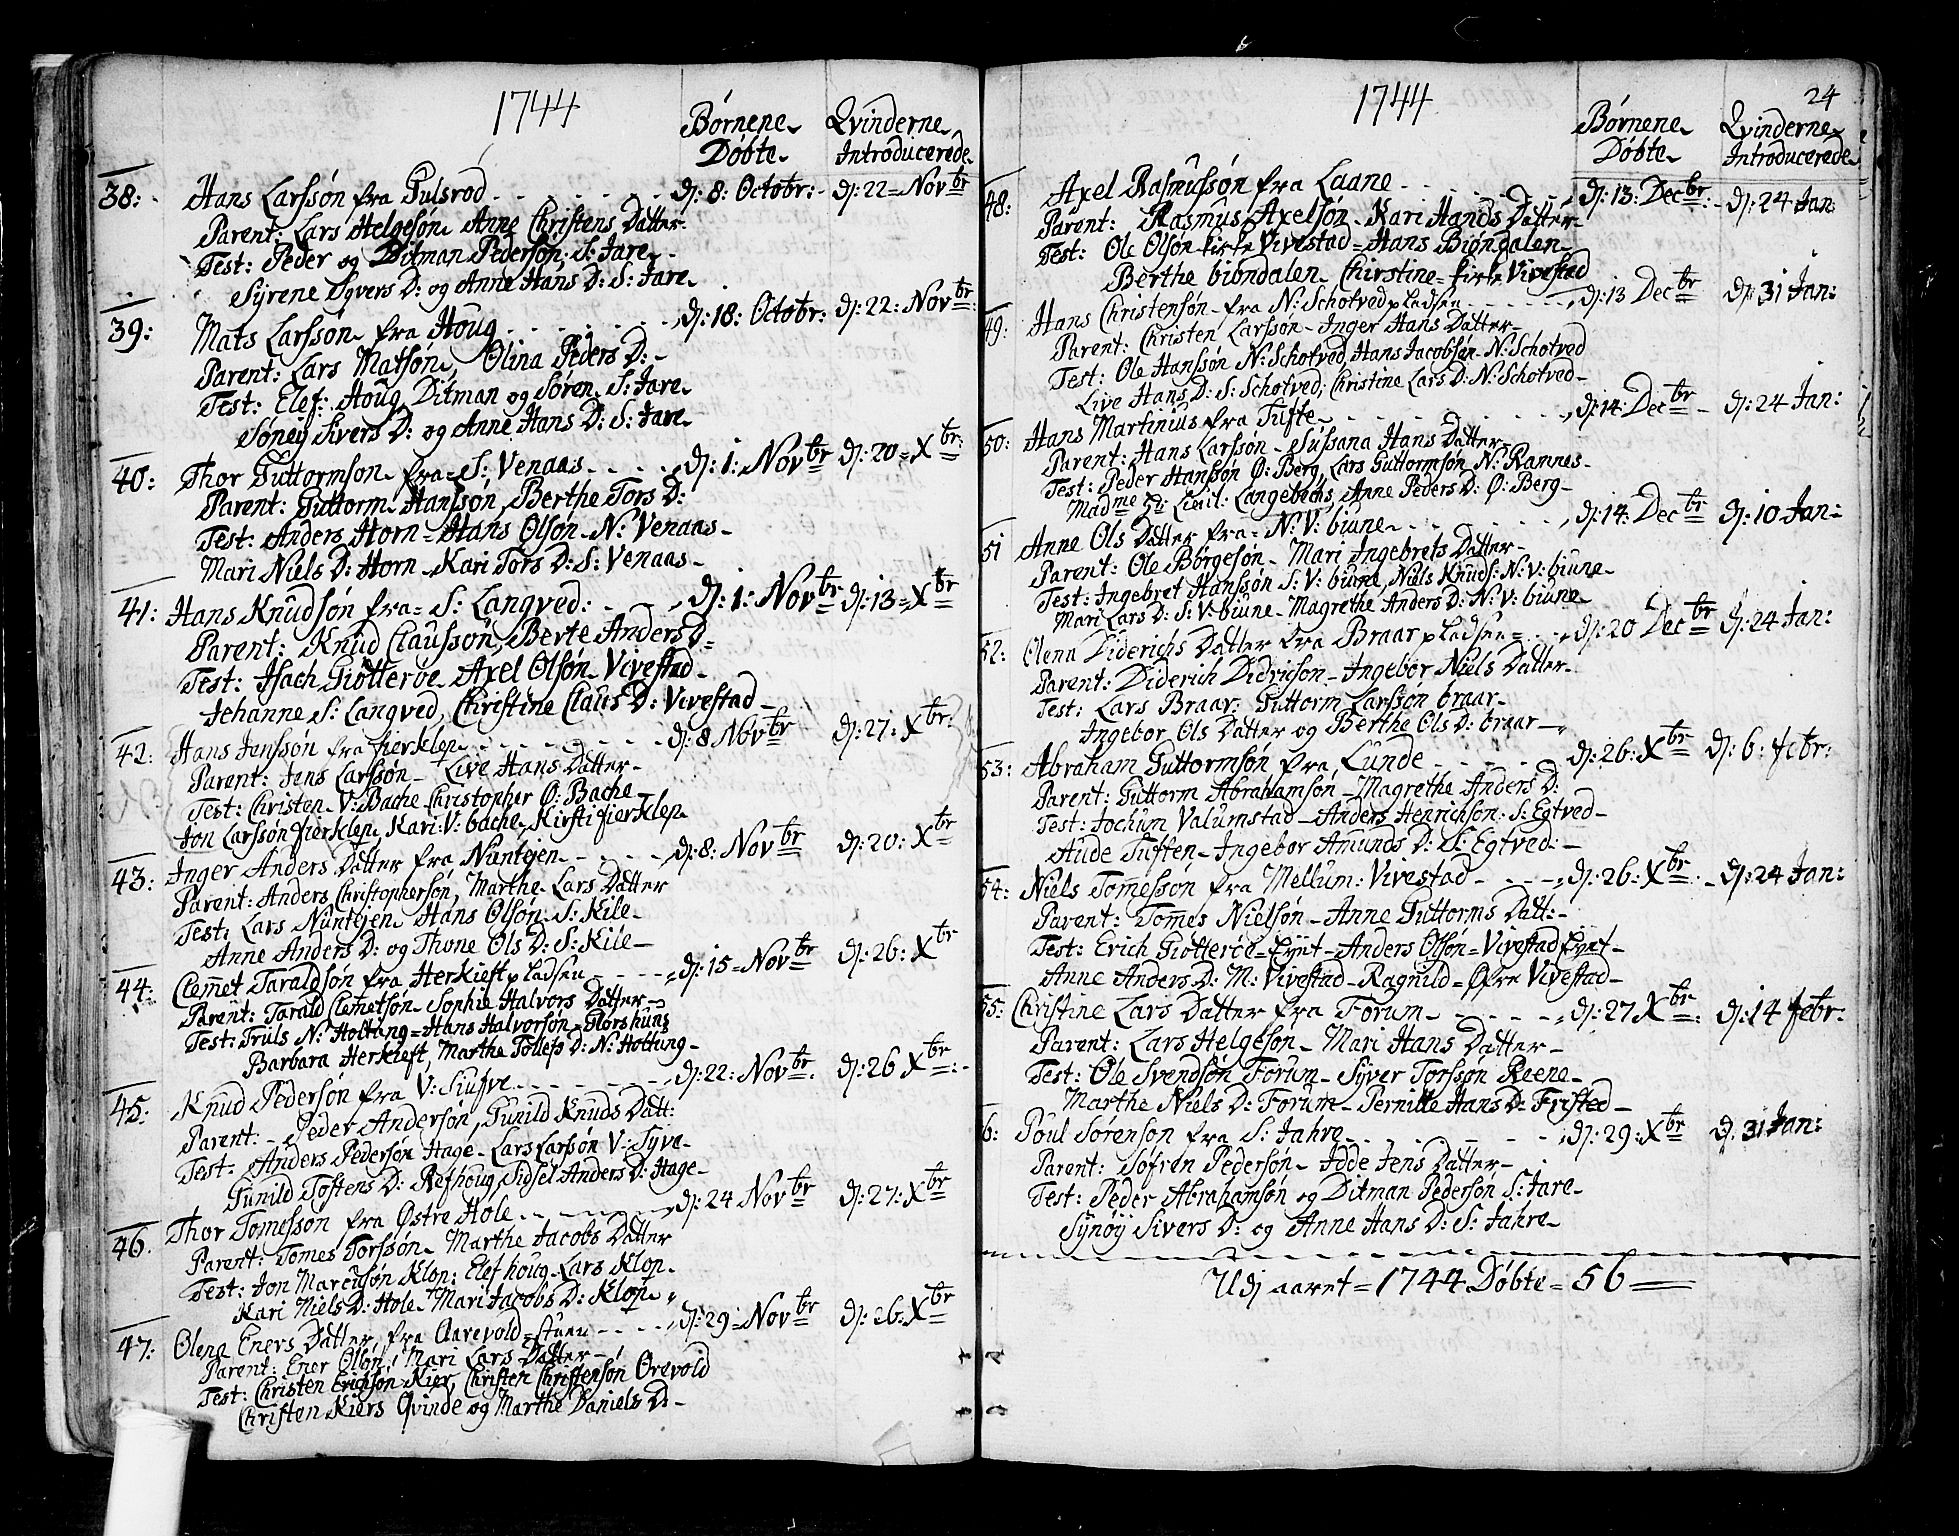 1744
Børnene Døbte
Qvinderne Introducerede
38: Hans Larssøn fra Gulsrod dj: 8: Octobr: dj: 22 = Novbr
Parent: Lars Helgesøn Anne Christens Datter
Test: Peder og Ditman Pedersøn: S: Jare
Syrene Syvers D: og Anne Hans D: S: Jare
39: Mats Larssøn fra Houg dj: 18: Octobr: dj: 22: Novbr:
Parent: Lars Matsøn, Olina Peders D:
Test: Elef: Houg Ditman og Søren S: Jare
Sønøy Sivers D: og Anne Hans D: S: Jare
40: Thor Guttormson fra S: Venaas dj: 1: Novbr dj: 20 = Xbr:
Parent: Guttorm Hanssøn, Berthe Tors D:
Test: Anders Horn = Hans Olsøn N: Venaas
Mari Niels D: Horn Kari Tors D: S: Venaas
41: Hans Knudsøn fra S: Langved: dj: 1: Novbr dj: 13 = Xbr
Parent: Knud Claussøn, Berte Anders D=
Test: Isach Giøtterøe Axel Olsøn Vivestad
Jehanne S: Langved, Christine Claus D: Vivestad
42: Hans Jenssøn fra fierklep dj: 8 Novbr dj: 27: Xbr:
Parent: Jens Larssøn Live Hans Datter
Test: Christen V: Bache Christopher Ø: Bache
Jon Larssøn fierklep, Kari V: bache, Kirsti fierklep
43: Inger Anders Datter fra Nuntjen dj: 8: Novbr dj: 20: Xbr
Parent: Anders Christophersøn, Marthe Lars Datter
Test: Lars Nuntjen Hans Olsøn S: Kile
Anne Anders D: og Thone Ols D: S: Kile
44: Clemet Taraldsøn fra Herkieft pladsen dj: 15 = Novbr dj: 26: Xbr
Parent: Tarald Clemetsøn Sophie Halvors Datter
Test: Truls N: Holtung = Hans Halvorsøn
Barbara Herkieft, Marthe Tollefs D: N: Holtung
45: Knud Pedersøn fra V: Siufve dj: 22: Novbr. dj: 26 Xbr:
Parent: Peder Andersøn, Gunild Knuds Datt:
Test: Anders Pedersøn Hage Lars Larsøn V: Syve
Gunild Tostens D: Refhoug, Sidsel Anders D: Hage
46. Thor Tomessøn fra Østre Hole dj: 24 Novbr dj: 27: Xbr
Parent: Tomes Torssøn Marthe Jacobs Datter
Test: Jon Marcusøn Klop: Elef houg Lars Klop
Kari Niels D: Hole Mari Jacobs D: Klop
47: Olena Eners Datter fra Aarevold stuen dj: 29 = Novbr dj: 26 = Xbr
Parent: Ener Olsøn, Mari Lars Datter
Test: Christen Erichsøn Kier, Christen Christensøn Orevold
Christen Kiers Qvinde og Marthe Daniels D:
1744
24
Børnene Døbte
Qvinderne Introducerede
48: Axel Rasmussøn fra Laane dj: 13: Decbr: dj: 24 Jan:
Parent: Rasmus Axelsøn Kari Hands Datter
Test: Ole Olsøn Vivestad = Hans Biøndalen
Berthe biøndalen Chirstine Vivestad
49. Hans Christensøn fra N: Schotved pladsen dj: 13 Decbr dj: 31 Jan:
Parent: Christen Larssøn Inger Hans Datter
Test: Ole Hanssøn N: Schotved, Hans Jacobsøn N: Schotved
Live Hans D: S: Schotved; Christine Lars D: N: Schotved
50: Hans Martinius fra Tufte dj: 14: Decbr dj: 24 Jan:
Parent: Hans Larssøn Sussana Hans Datter
Test: Peder Hanssøn Ø: Berg Lars Guttormsøn N: Ramnes
Madme Lieut: Langebechs, Anne Peders D: Ø: Berg
51 Anne Ols Datter fra N: V: biune dj: 14: Decbr dj: 10 Jan:
Parent: Ole Børgesøn Mari Ingebrets Datter
Test: Ingebret Hanssøn S: V: biune, Niels Knuds: N: V: biune
Mari Lars D: S: V: biune Magrethe Anders D: N: V: biune
52: Olena Diderichs Datter fra Braar pladsen dj: 20 Decbr dj: 24 Jan:
Parent: Diderich Didrichson Ingebor Niels Datter
Test: Lars Braar: Guttorm Larssøn braar
Ingebor Ols Datter og Berthe Ols D: braar
53: Abraham Guttormsøn fra Lunde dj: 26: Xbr dj: 6: febr:
Parent: Guttorm Abrahamsøn Magrethe Anders D:
Test: Jochum Valumstad Anders Henrichsøn: S: Egtved
Aude Tuffen Ingebor Amunds D: S: Egtved:
54: Niels Tomessøn fra Mellum: Vivestad dj: 26: Xbr. dj: 24 Jan:
Parent: Tomes Nielsøn Anne Guttorms Datt:
Test: Erich Giøtterøe = Eynt Anders Olsøn = Vivestad Eynt
Anne Anders D: M: Vivestad Ragnild = Øfre Vivestad
55: Christine Lars Datter fra Forum dj: 27 Xbr: dj: 14 febr:
Parent: Lars Helgesøn Mari Hans Datter
Test: Ole Svendsøn Forum Syver Torssøn Reene
Marthe Niels D: Forum Pernille Hans D: Fristed
6: Poul Sørenson fra S: Jahre dj: 29: Xbr dj: 31 Jan:
Parent: Søfren Pedersøn Idde Jens Datter
Test: Peder Abrahamsøn og Ditman Pedersøn S: Jare
Synøy Sivers D: og Anne Hans D: S: Jahre
Udj aaret = 1744 Døbte = 56